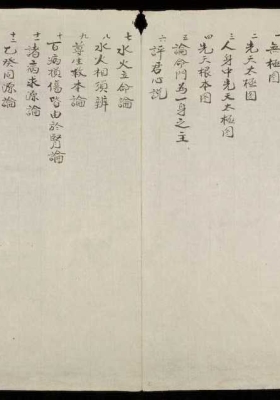 一 無極图
二 先天太極图
三 人身中先天太極图
四 先天根本图
五 論命門為一身之主
六 評君心説
七 水火立命論
八 水火相須辨
九 尊生救本論
十 百病損傷皆由於腎論
十一 諸病求源論
十二 乙癸同源論